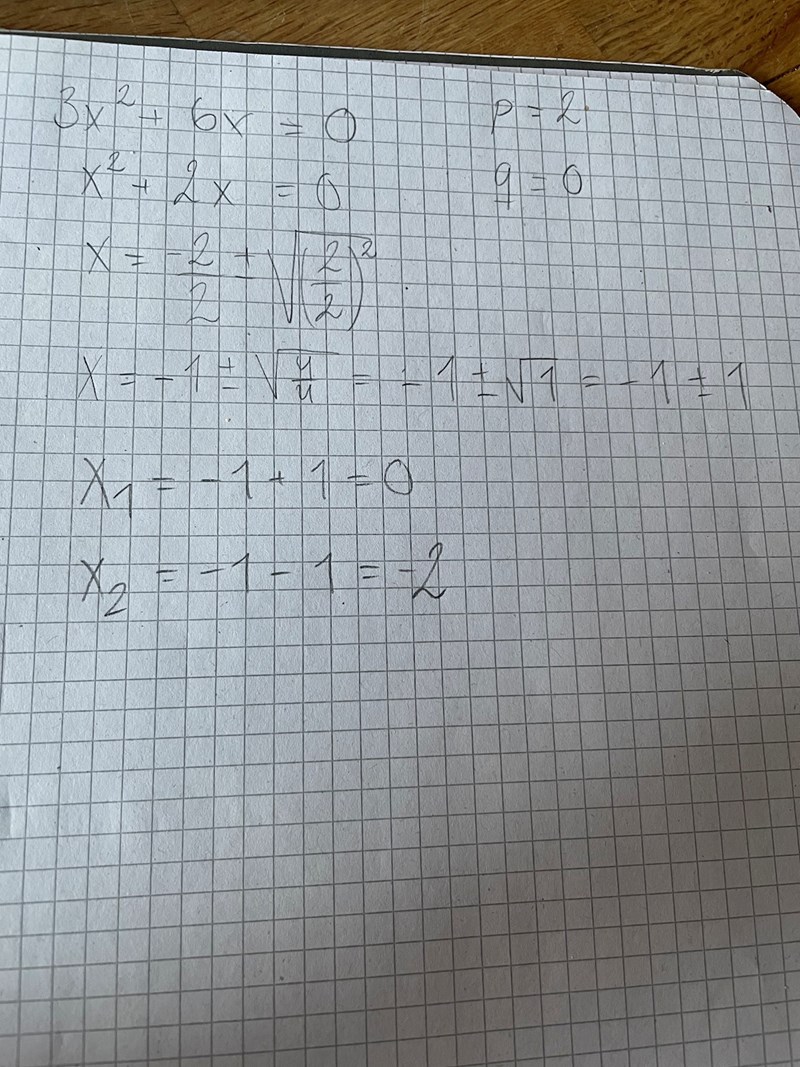 3x² + 6x = 0
p = 2
x² + 2x = 0
q = 0
x = -2/2 ± √(2/2)²
x = -1 ± √4/4 = -1 ± √1 = -1 ± 1
x₁ = -1 + 1 = 0
x₂ = -1 - 1 = -2